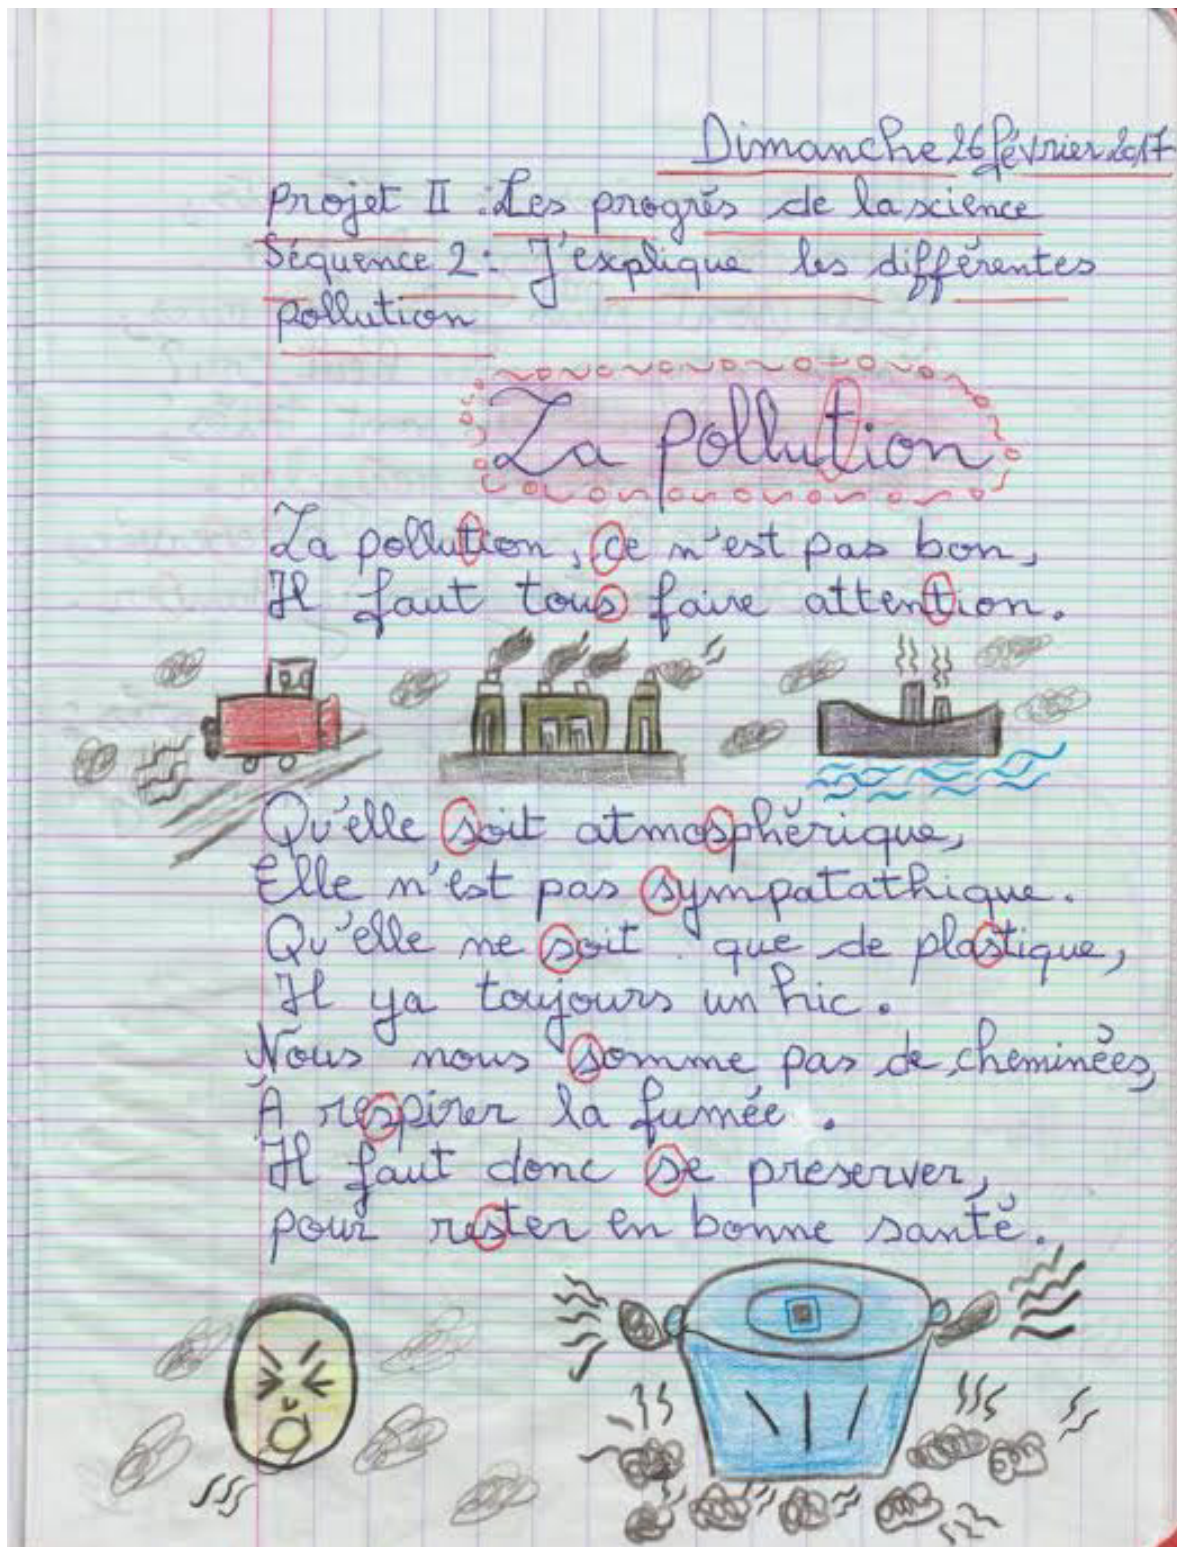 Dimanche 26 février 2017
Projet II : Les progrès de la science
Séquence 2 : J'explique les différentes
pollution
La pollution
La pollution, ce n'est pas bon,
Il faut tous faire attention.
Qu'elle soit atmosphérique,
Elle n'est pas sympatathique.
Qu'elle ne soit que de plastique,
Il ya toujours un hic.
Nous nous somme pas de cheminées,
À respirer la fumée.
Il faut donc se preserver,
pour rester en bonne santé.